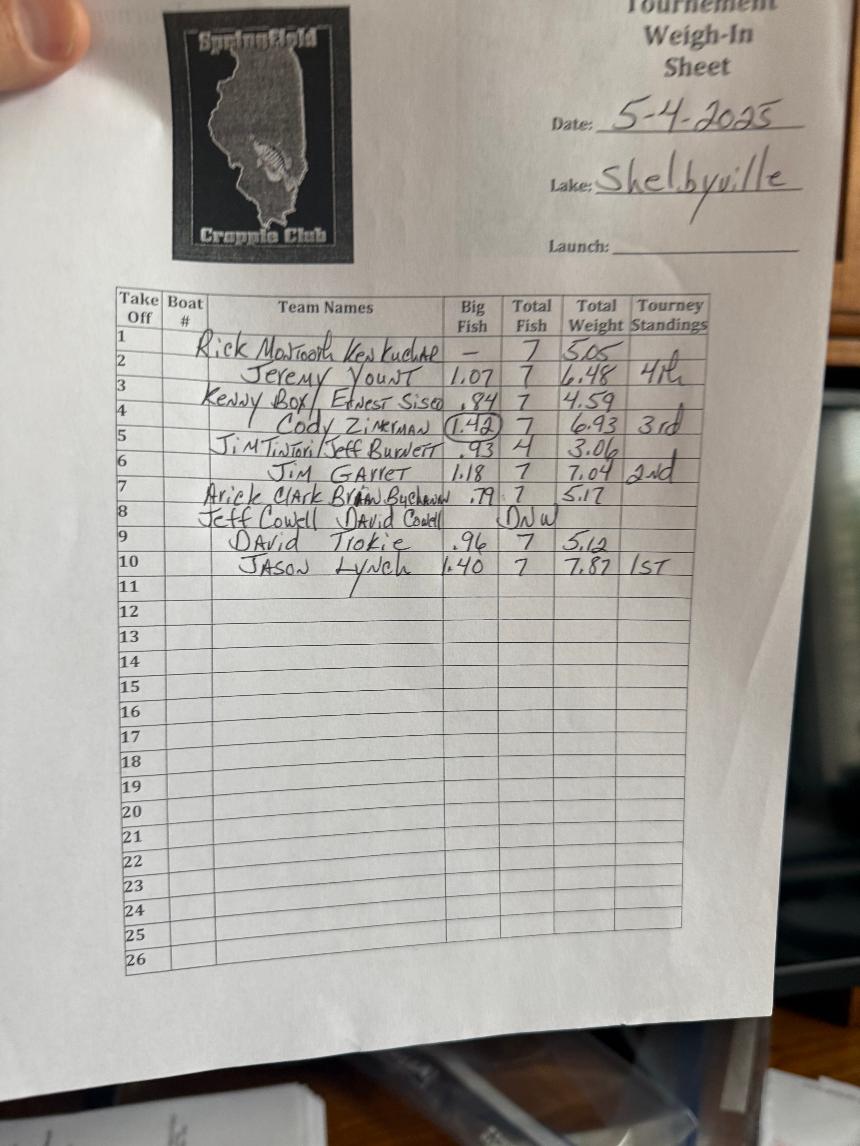 Springfield
Crappie Club
Tournement
Weigh-In
Sheet
Date: 5-4-2025
Lake: Shelbyville
Launch:
Take Off Boat # Team Names Big Fish Total Fish Total Weight Tourney Standings
1 Rick Montooth Ken Kuchar — 7 5.05
2 Jeremy Yount 1.07 7 6.48 4th
3 Kenny Box/ Ernest Sisco .84 7 4.59
4 Cody Zimerman 1.42 7 6.93 3rd
5 Jim Tintori/Jeff Burnett .93 4 3.06
6 Jim Garret 1.18 7 7.04 2nd
7 Arick Clark Brian Buchanan .79 7 5.17
8 Jeff Cowell David Cowell DNW
9 David Trokie .96 7 5.12
10 Jason Lynch 1.40 7 7.87 1ST
11
12
13
14
15
16
17
18
19
20
21
22
23
24
25
26